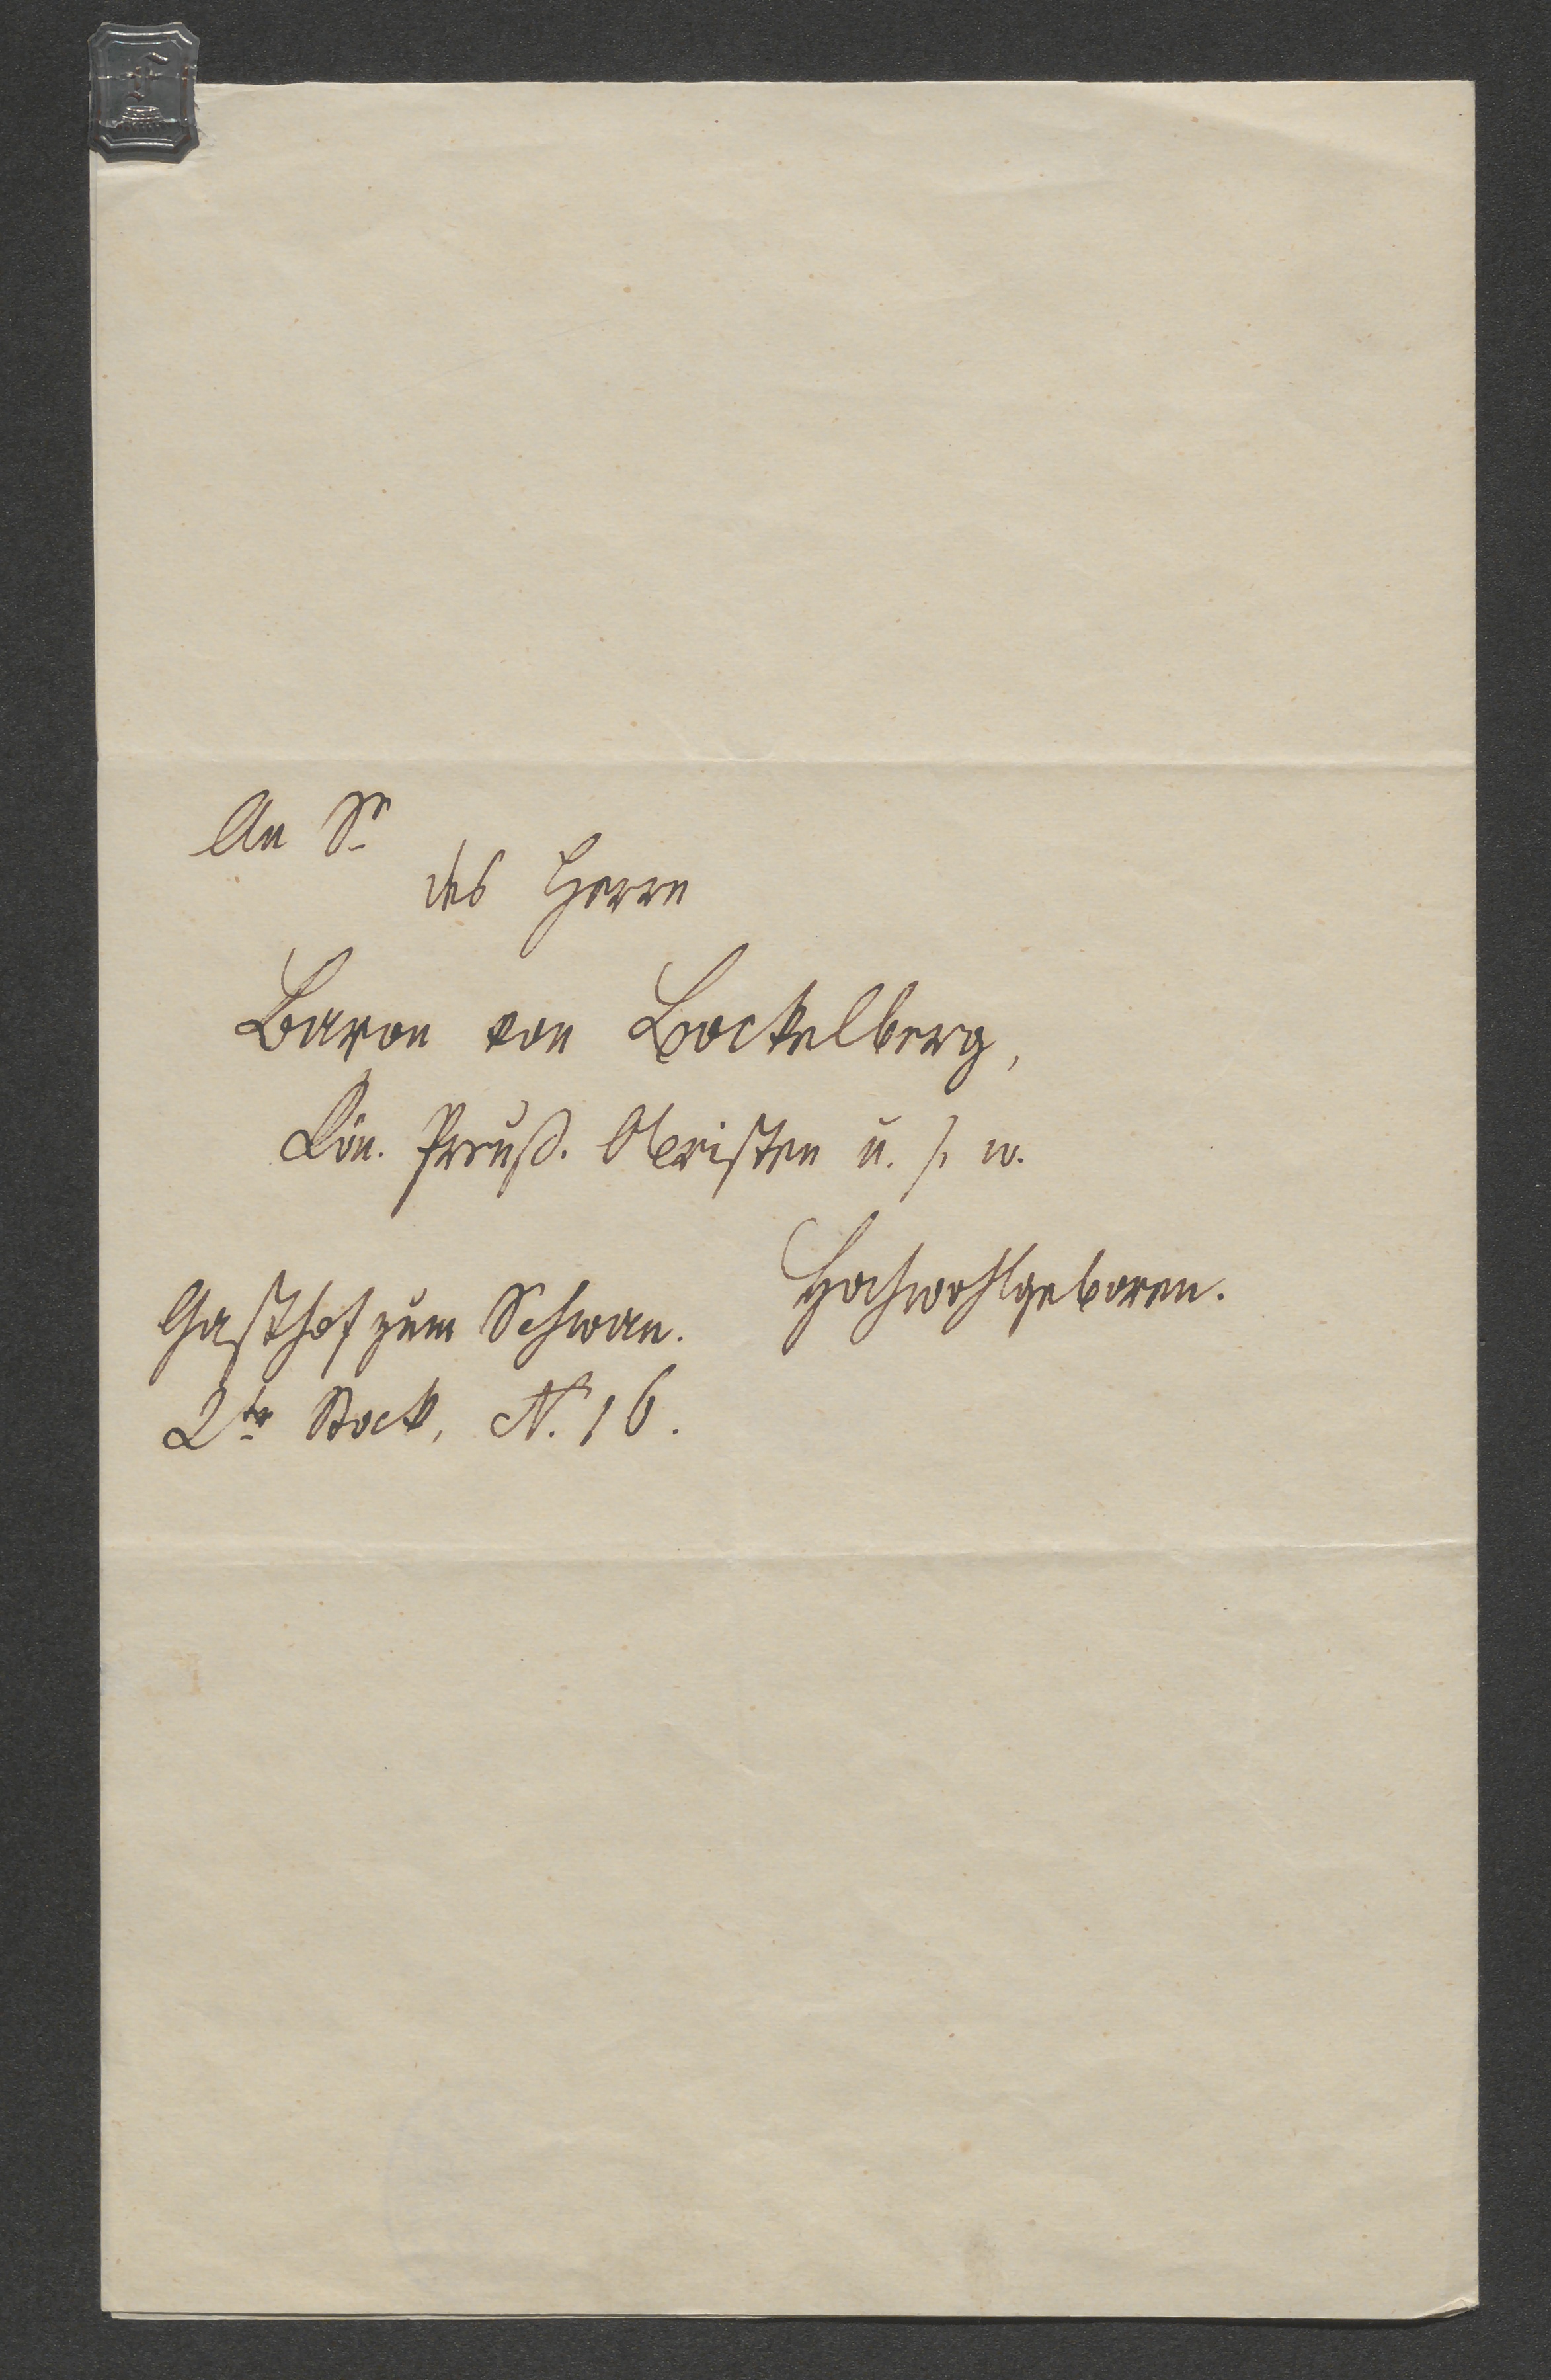 An Sr
des Herrn
Baron von Bockelberg,
Kön. Preuß. Obristen u. s. w.
Hochwohlgeboren.
Gasthof zum Schwan.
2tr Stock, N. 16.